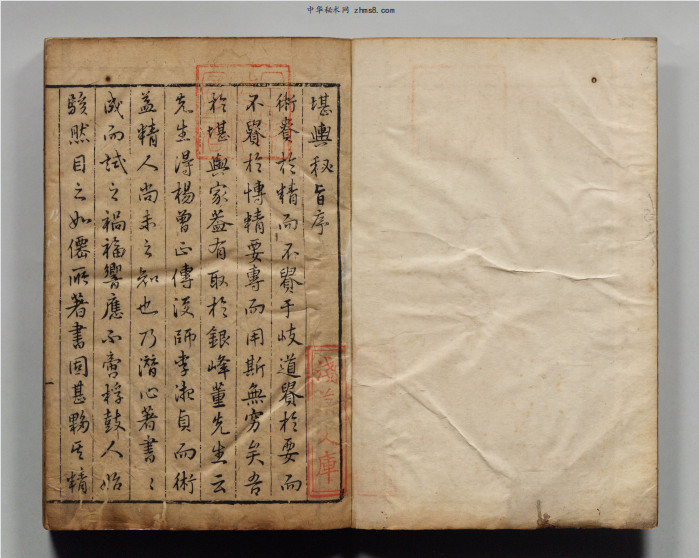 中华秘术网 zhms8.com
堪輿秘旨序
術貴於精而不貴于岐道貴於要而
不貴於博精要專而用斯無窮矣吾
於堪輿家蓋有取於銀峰董先生云
先生得楊曾正傳復師李淑貞而術
益精人尚未之知也乃潛心著書書
成而試之禍福響應不啻桴鼓人始
駭然目之如僊所著書固甚夥其精
淺草文庫